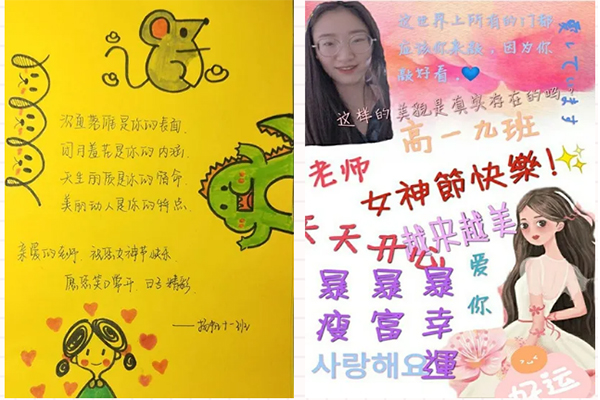 沉鱼落雁是你的表面,
闭月羞花是你的内涵,
天生丽质是你的宿命
美丽动人是你的特点.
亲爱的老师 祝您女神节快乐
愿您笑口常开,
这世界上所有的门都
应该你来敲,因为你
敲好看.
这样的美貌是真实存在的吗?
高一九班
老师
女神節快樂!
天天开心
越来越美
爱你
暴暴暴
瘦富幸
運
사랑해요
好运